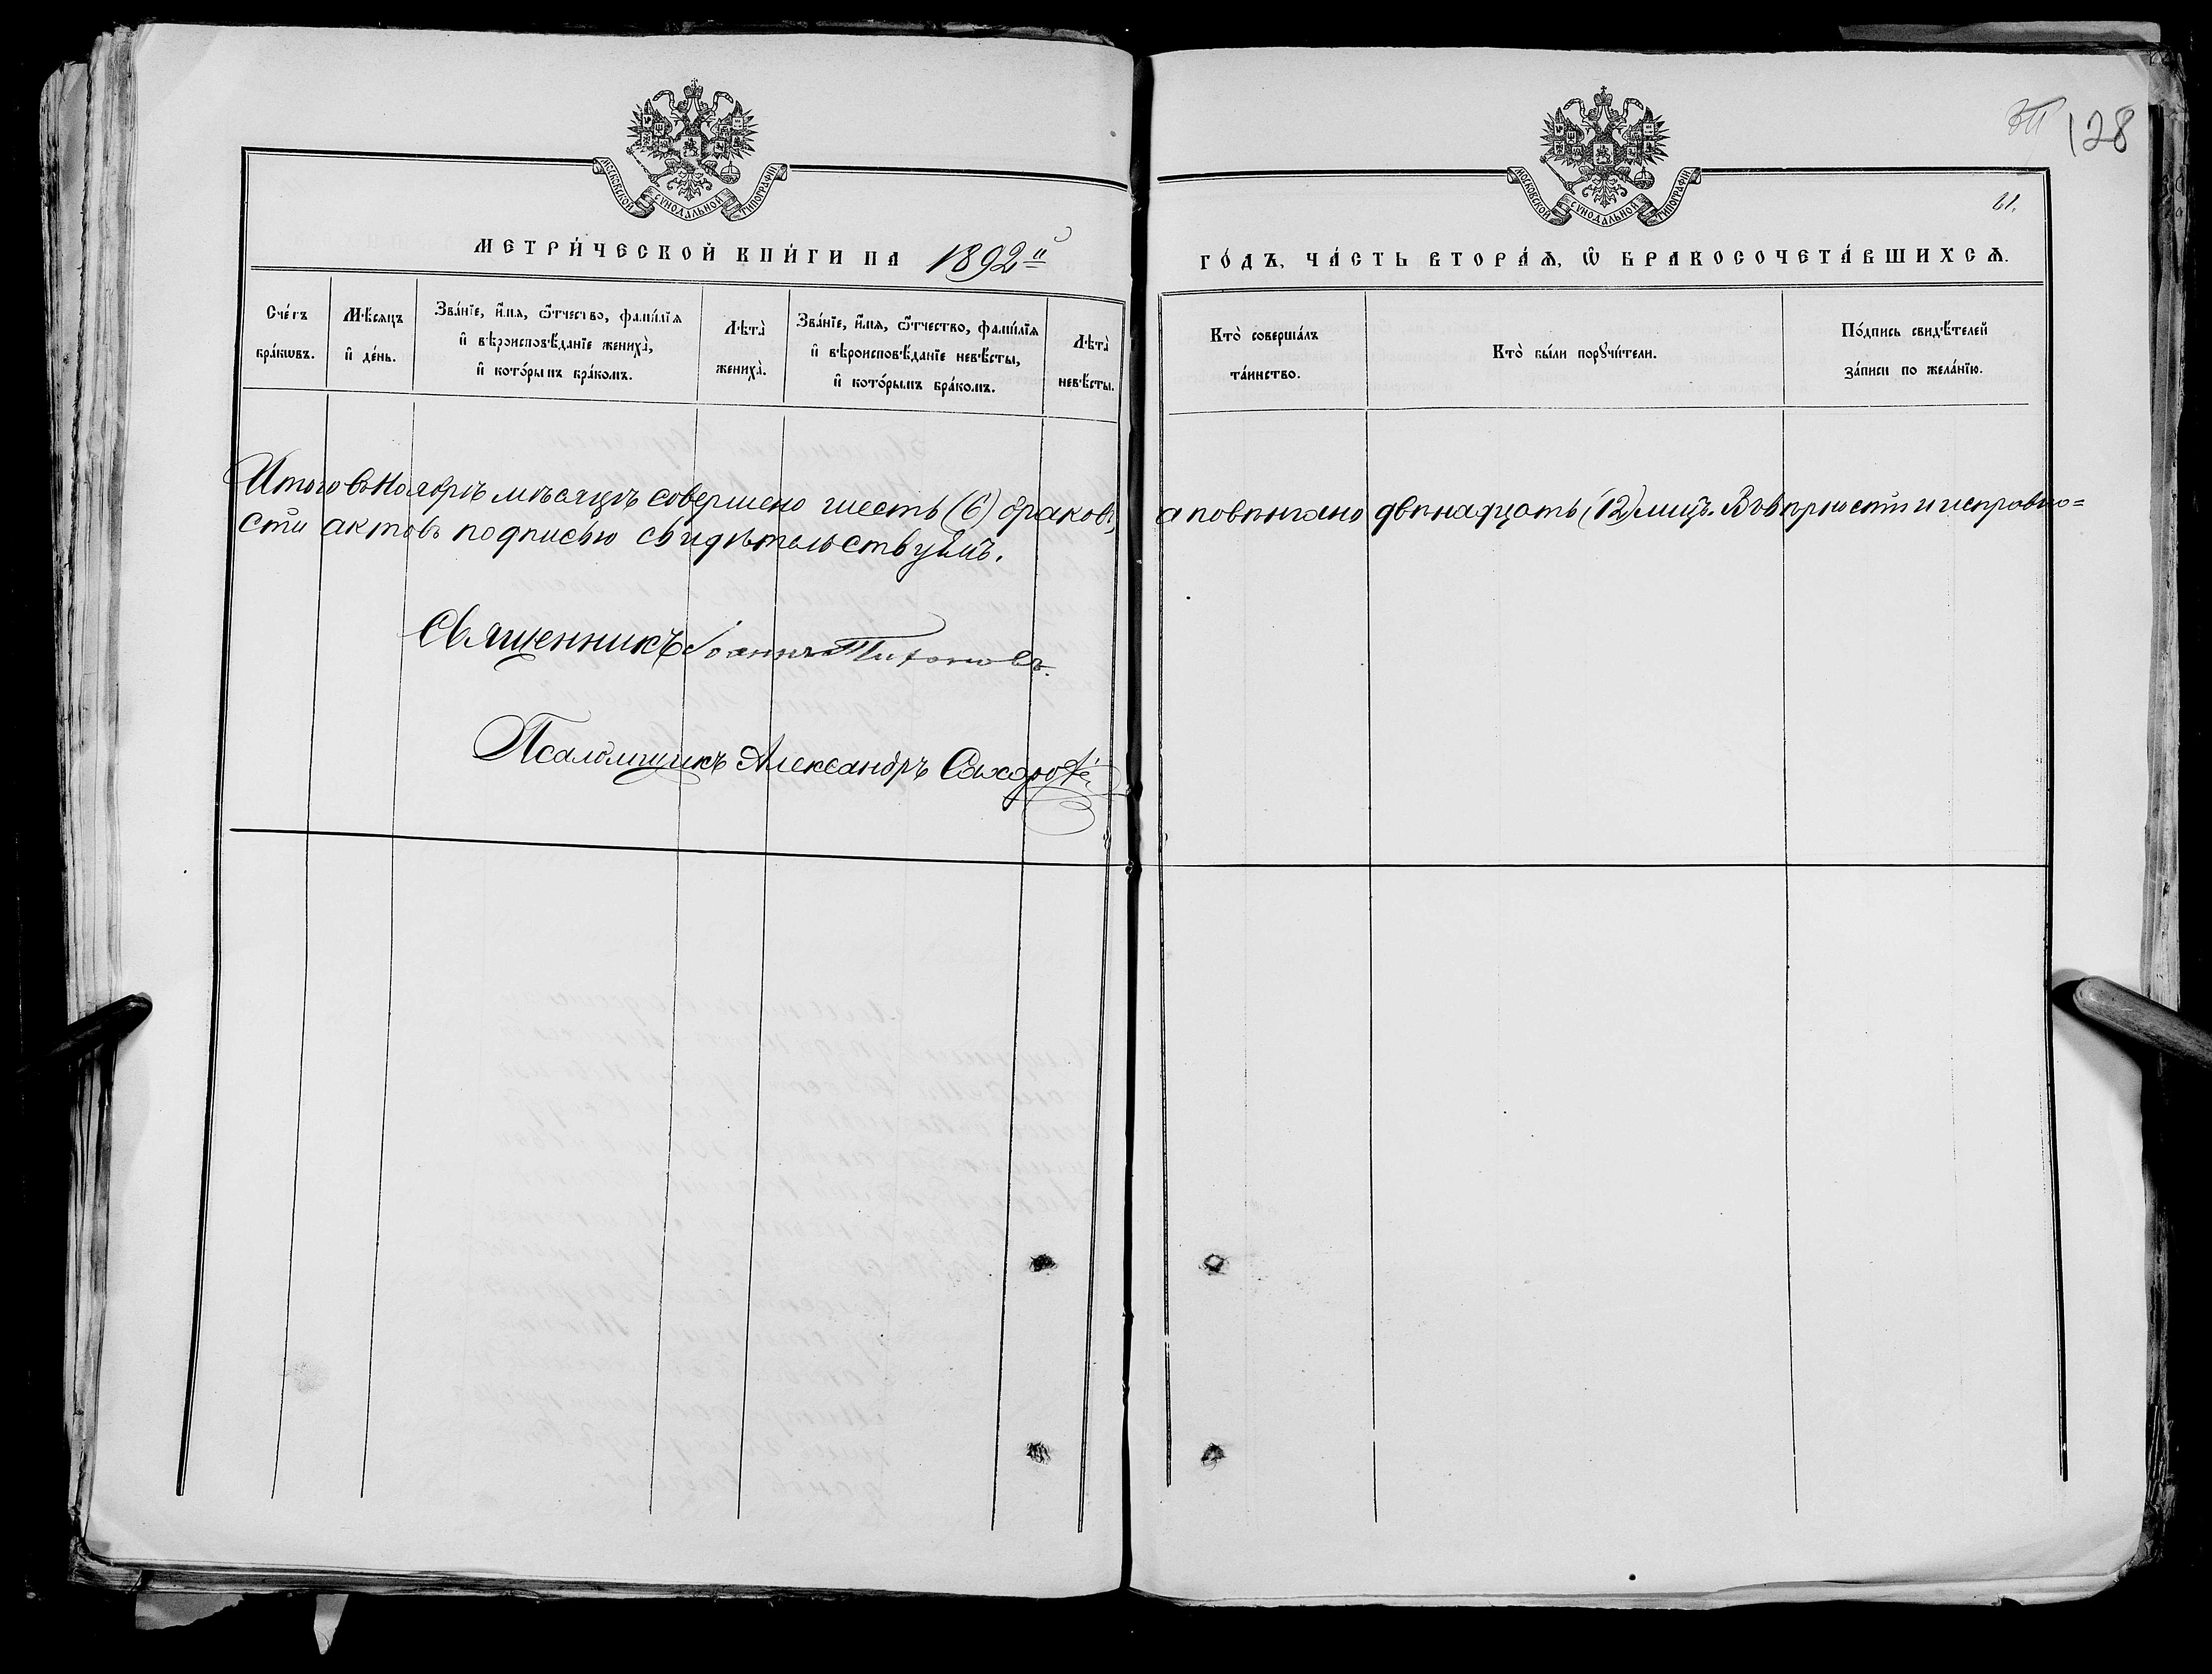 128
61.
МОСКОВСКОЙ СУНОДАЛЬНОЙ ТИПОГРАФІИ
МОСКОВСКОЙ СУНОДАЛЬНОЙ ТИПОГРАФІИ
МЕТРИ́ЧЕСКОЙ КНИ́ГИ НА 1892й ГО́ДЪ, ЧА́СТЬ ВТОРА́Ѧ, Ѡ҆ БРАКОСОЧЕТА́ВШИХСѦ.
Сче́тъ
бра́кѡвъ.
Мѣ́сяцъ
и҆ де́нь.
Зва́нїе, и҆́мѧ, ѻ҆́тчество, фами́лїѧ
и҆ вѣроисповѣ́данїе жениха̀,
и҆ кото́рымъ бра́комъ.
Лѣта̀
жениха̀.
Зва́нїе, и҆́мѧ, ѻ҆́тчество, фами́лїѧ
и҆ вѣроисповѣ́данїе невѣ́сты,
и҆ кото́рымъ бра́комъ.
Лѣта̀
невѣ́сты.
Кто̀ соверша́лъ
та́инство.
Кто̀ бы́ли порꙋчи́тели.
По́дпись свидѣ́телей
за́писи по жела́нїю.
Итого въ Ноябрѣ мѣсяцѣ совершено шесть (6) браковъ, а повѣнчано двѣнадцать (12) лицъ. Въ вѣрности и исправно=
сти актовъ подписью свидѣтельствуемъ.
Священникъ Іоаннъ Тихоновъ.
Псаломщикъ Александръ Сахаровъ